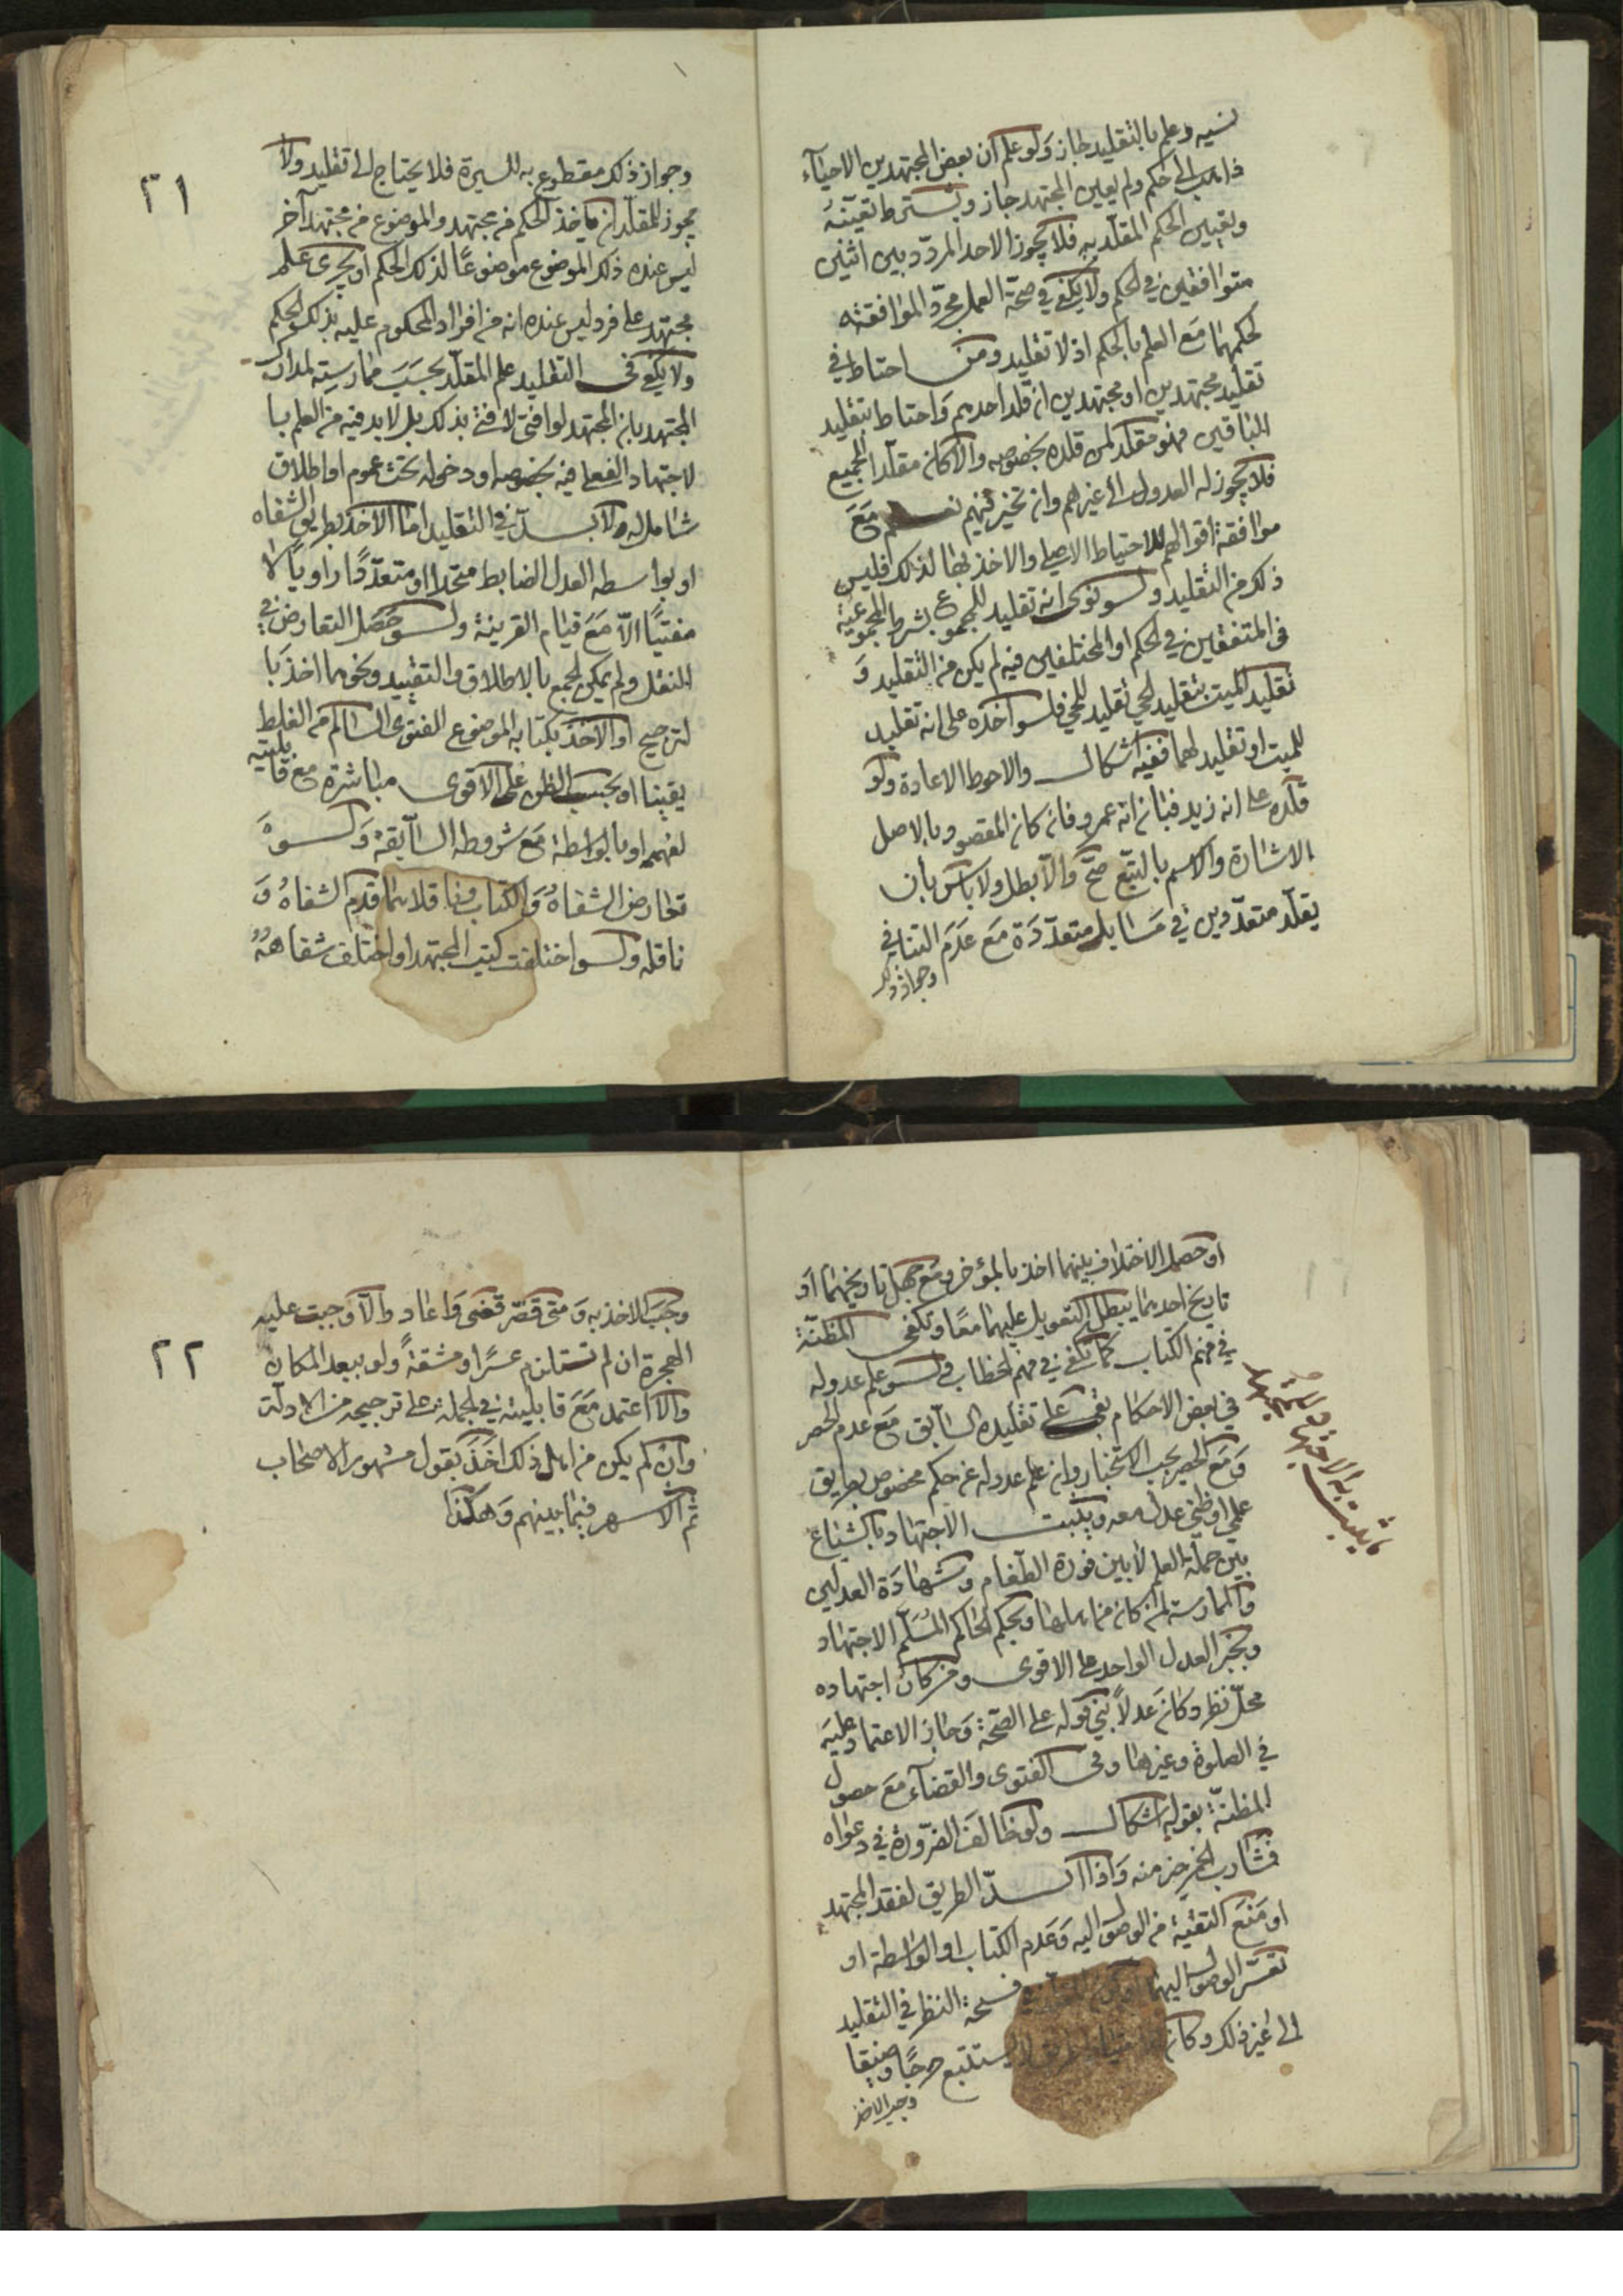 نسيه وعلم بالتقليد جاز ولو علم ان بعض المجتهدين الاحياء
ذاهب الى حكم ولم يعين المجتهد جاز ويشترط تعيينه
وتعيين الحكم المقلد به فلا يجوز الاحد المردد بين اثنين
متوافقين في الحكم ولا يكفي في صحة العمل مجرد الموافقة
لحكمهما مع العلم بالحكم اذ لا تقليد ومن احتاط في
تقليد مجتهدين او مجتهدين ان قلد احدهم واحتاط بتقليد
الباقين فهو مقلد لمن قلده بخصوصه والا كان مقلدا للجميع
فلا يجوز له العدول الى غيرهم وان تخير فيهم نعم مع
موافقة اقوالهم للاحتياط الاصلي والاخذ بها لذلك فليس
ذلك من التقليد ولو نوى انه تقليد للمجموع بشرط المجموعية
في المتفقين في الحكم او المختلفين فيه لم يكن من التقليد و
تقليد الميت بتقليد الحي تقليد للحي فلو اخذه على انه تقليد
للميت او تقليد لهما ففيه اشكال والاحوط الاعادة ولو
قلده على انه زيد فبان انه عمرو فان كان المقصود بالاصل
الاشارة والاسم بالتبع صح والا بطل ولا باس بان
يقلد متعددين في مسايل متعددة مع عدم التنافي
وجواز ذلك
٢١
وجواز ذلك مقطوع به للسيرة فلا يحتاج الى تقليد ولا
يجوز للمقلد ان ياخذ الحكم من مجتهد والموضوع من مجتهد آخر
ليس عنده ذلك الموضوع موضوعا لذلك الحكم او يجري علم
مجتهد على فرد ليس عنده انه من افراد المحكوم عليه بذلك الحكم
ولا يكفي في التقليد علم المقلد بحسب ممارسته لمدارك
المجتهد بان المجتهد لو افتى لافتى بذلك بل لا بد فيه من العلم با
لاجتهاد الفعلي فيه بخصوصه او دخوله تحت عموم او اطلاق
شامل له ولا بد في التقليد اما الاخذ بطريق الشفاه
او بواسطه العدل الضابط متحدا او متعددا راويا لا
مفتيا الا مع قيام القرينة ولو حصل التعارض في
النقل ولم يمكن الجمع بالاطلاق والتقييد ونحوهما اخذ با
لترجيح او الاخذ بكتابه الموضوع للفتوى السالم من الغلط
يقينا او بحسب الظن على الاقوى مباشرة مع قابليته
لفهمه او بالواسطة مع شروطه السابقة ولو
تعارض الشفاه والكتاب وناقلاهما قدم الشفاه و
ناقله ولو اختلفت كتب المجتهد او اختلف شفاهه
او حصل الاختلاف بينهما اخذ بالمؤخر ومع جهل تاريخهما او
تاريخ احدهما يبطل التعويل عليهما معا وتكفي المظنة
في فهم الكتاب كما تكفي في فهم الخطاب ولو علم عدوله
في بعض الاحكام بقي على تقليده السابق مع عدم الحصر
ومع الحصر يجب الاستخبار وان علم عدوله عن حكم مخصوص بطريق
علمي او ظني عدل معه ويثبت الاجتهاد بالشياع
بين حملة العلم لا بين فورة الطغام وشهادة العدلين
والممارسة لمن كان من اهلها وبحكم الحاكم المسلم الاجتهاد
وبخبر العدل الواحد على الاقوى ومن كان اجتهاده
محل نظر وكان عدلا بني قوله على الصحة وجاز الاعتماد عليه
في الصلوة وغيرها وفي الفتوى والقضاء مع حصول
المظنة بقوله اشكال ولو خالف الضرورة في دعواه
فشارب الخمر خير منه واذا انسد الطريق لفقد المجتهد
او منع التقية من الوصول اليه وعدم الكتاب او الواسطة او
تعسر الوصول اليهما فسحة النظر في التقليد
الى غير ذلك وكان لا يستتبع حرجا وضيقا
وجب الاخذ
ما يثبت به الاجتهاد
٢٢
وجب الاخذ به ومتى قصر قضى واعاد والا وجبت عليه
الهجرة ان لم تستلزم عسرا ومشقة ولو ببعد المكان
والا اعتمد مع قابليته في الجملة على ترجيحه من الادلة
وان لم يكن من اهل ذلك اخذ بقول مشهور الاصحاب
ثم الاشهر فيما بينهم وهكذا